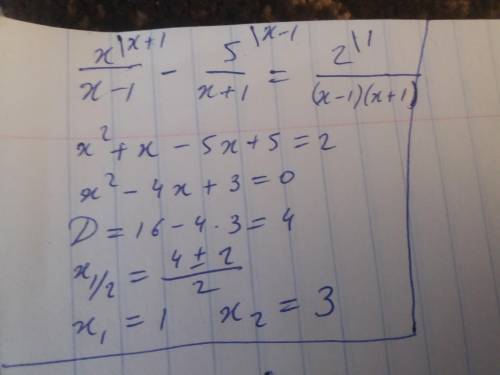 x\x+1 / x-1 - 5\x-1 / x+1 = 2\1 / (x-1)(x+1)
x² + x - 5x + 5 = 2
x² - 4x + 3 = 0
D = 16 - 4 · 3 = 4
x1/2 = 4 ± 2 / 2
x1 = 1 x2 = 3